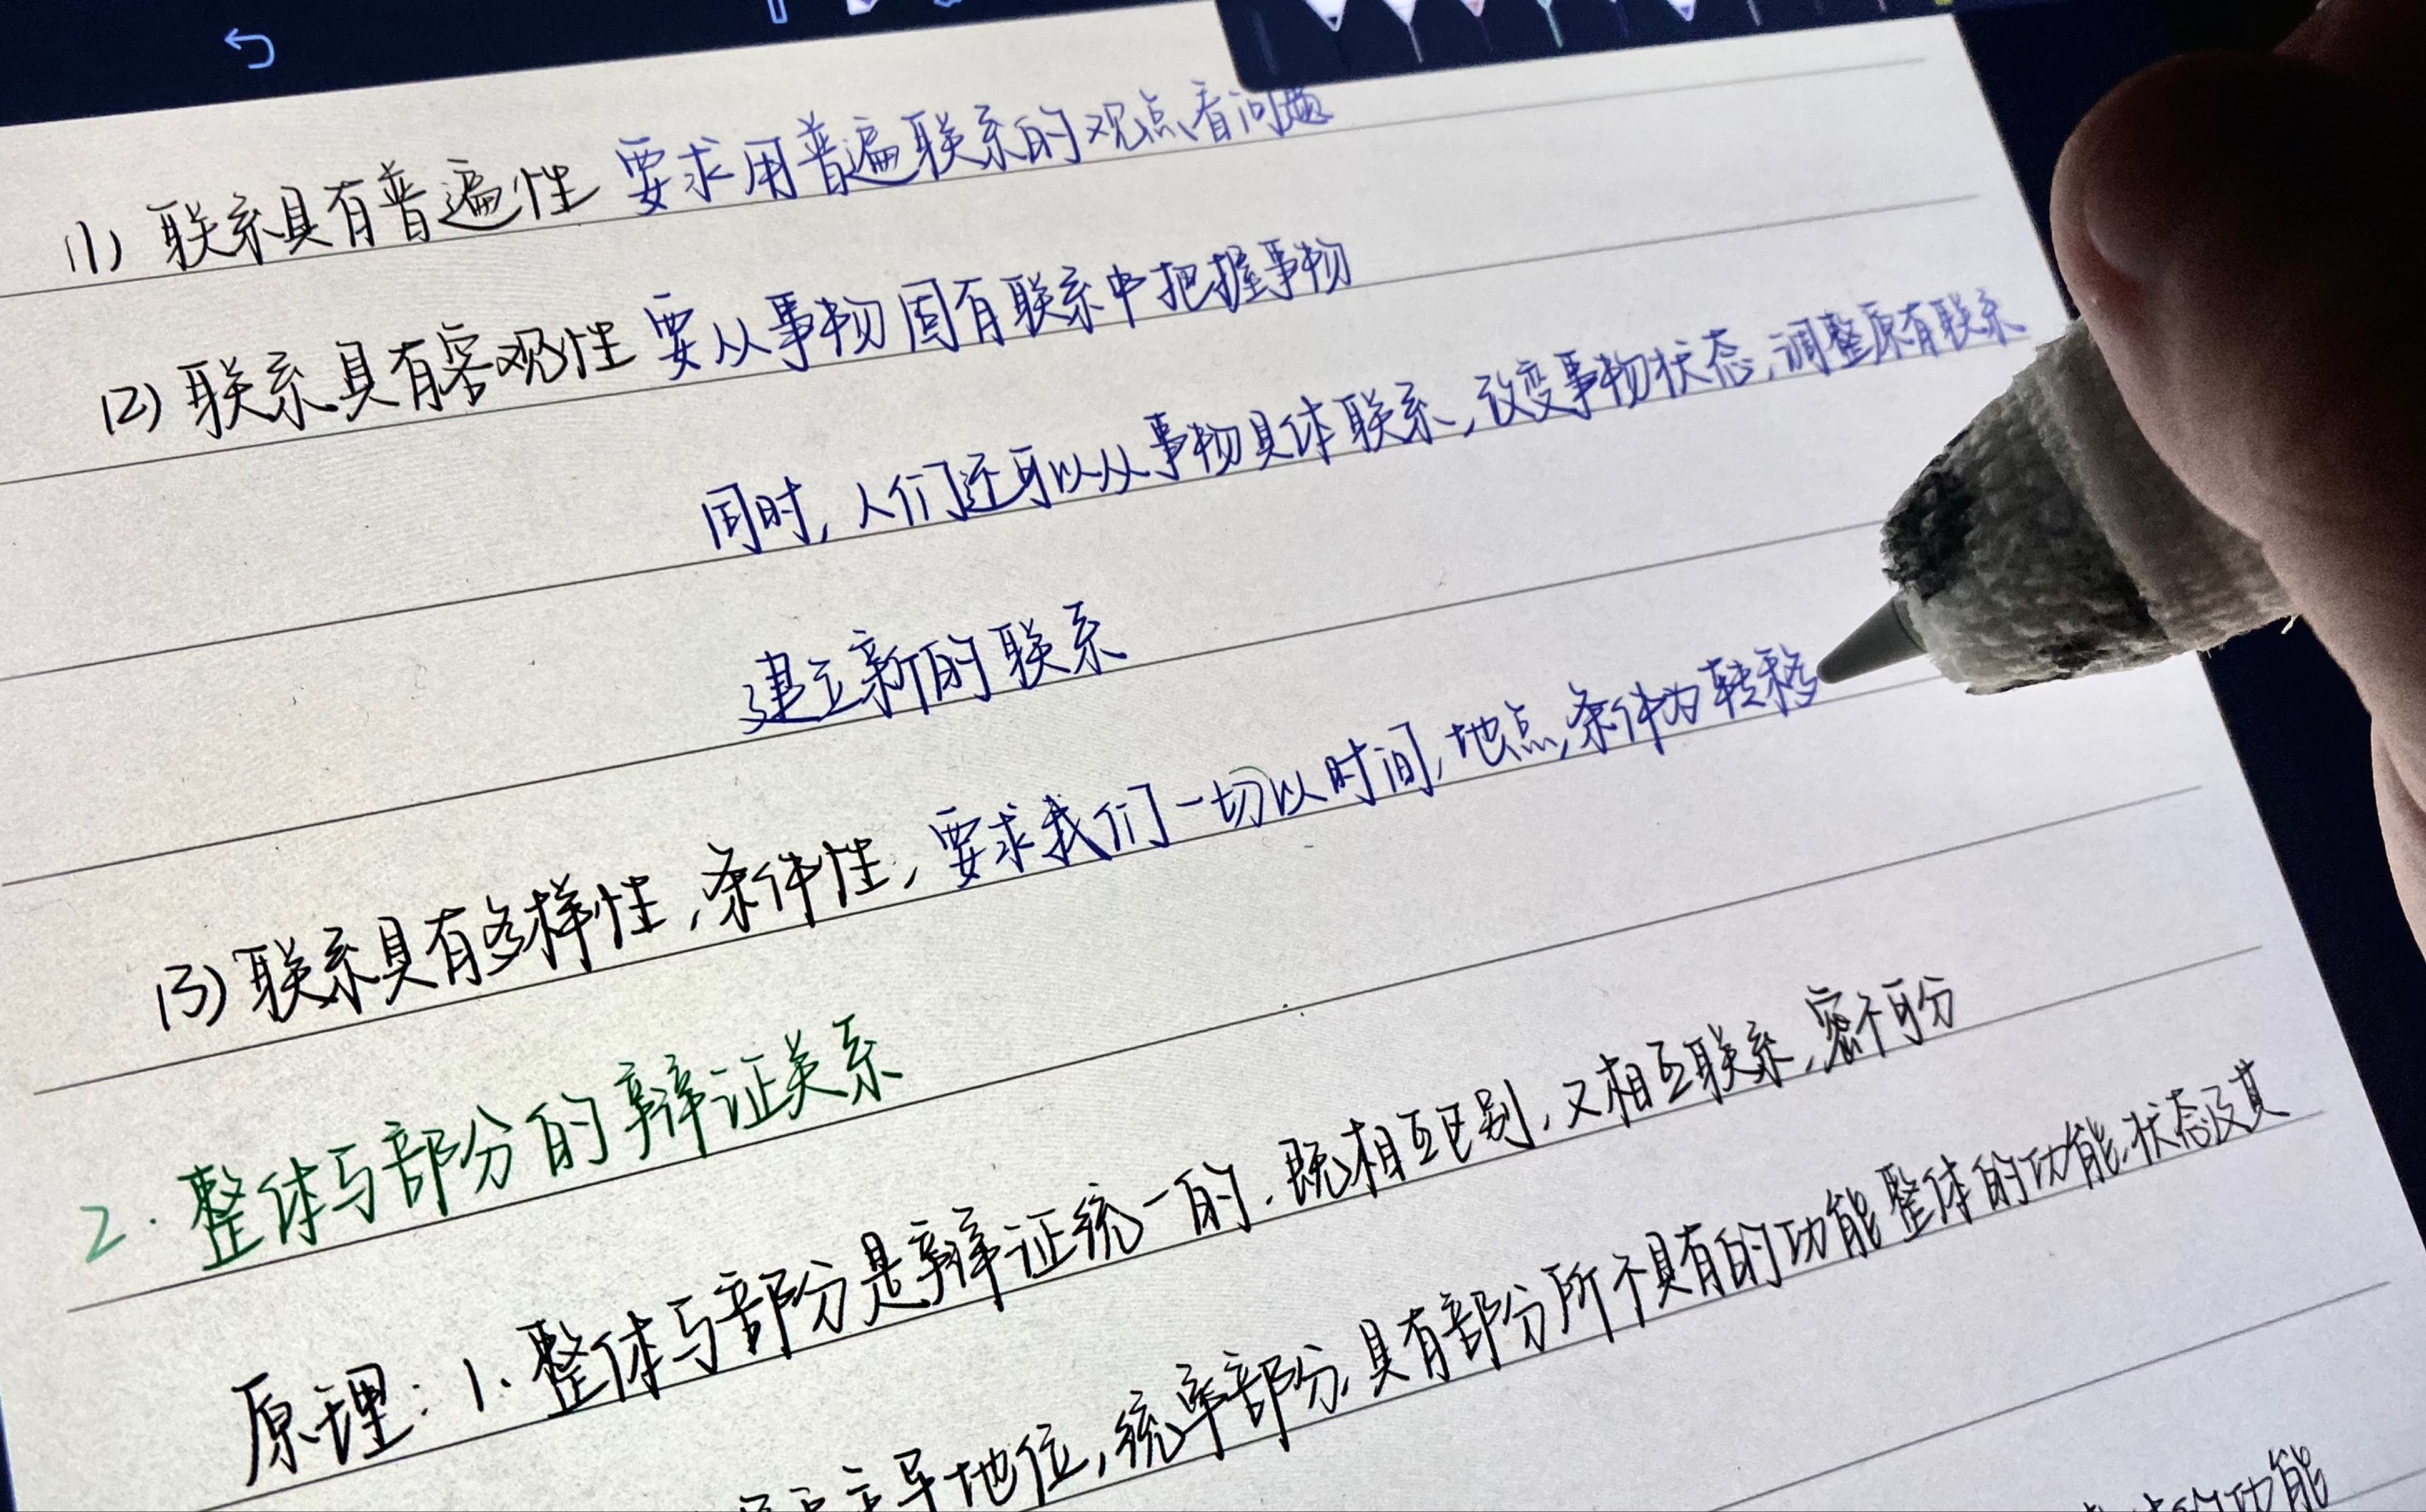 (1) 联系具有普遍性 要求用普遍联系的观点看问题
(2) 联系具有客观性 要从事物固有联系中把握事物
同时,人们还可以从事物具体联系,改变事物状态,调整原有联系
建立新的联系
(3) 联系具有多样性,条件性,要求我们一切以时间,地点,条件为转移
2. 整体与部分的辩证关系
原理: 1. 整体与部分是辩证统一的.既相互区别,又相互联系,密不可分
主导地位,统率部分,具有部分所不具有的功能 整体的功能,状态及其
的功能